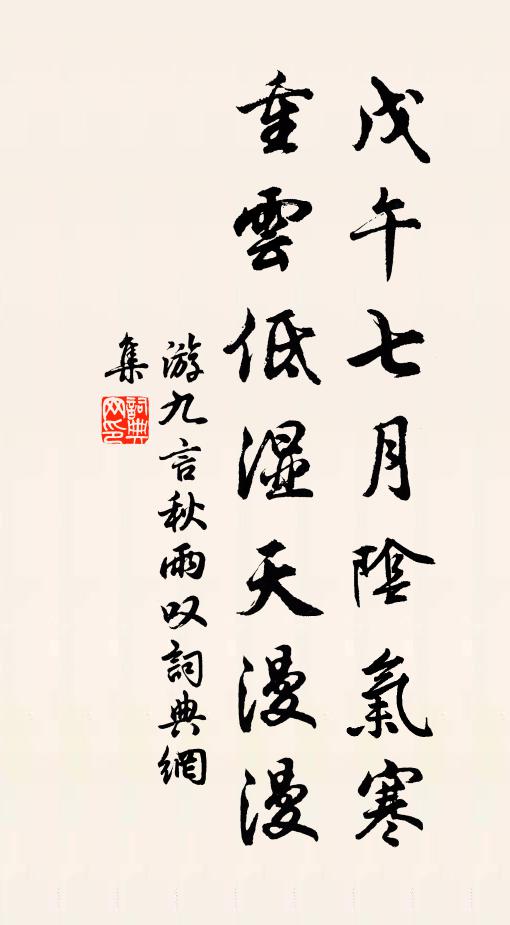 戊午七月陰氣寒
重雲低濕天漫漫
游九言秋雨叹詞典網
集
詞典網印